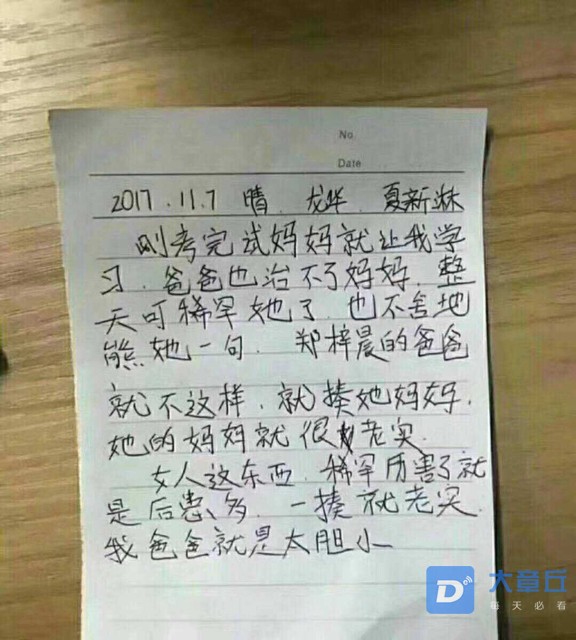 No.
Date
2017.11.7 晴. 龙华. 夏新淋
刚考完试妈妈就让我学
习.爸爸也治不了妈妈.整
天可稀罕她了.也不舍地
熊她一句.郑梓晨的爸爸
就不这样.就揍她妈妈.
她的妈妈就很老实.
女人这东西.稀罕历害了就
是后患多.一揍就老实.
我爸爸就是太胆小
大章丘
每天必看